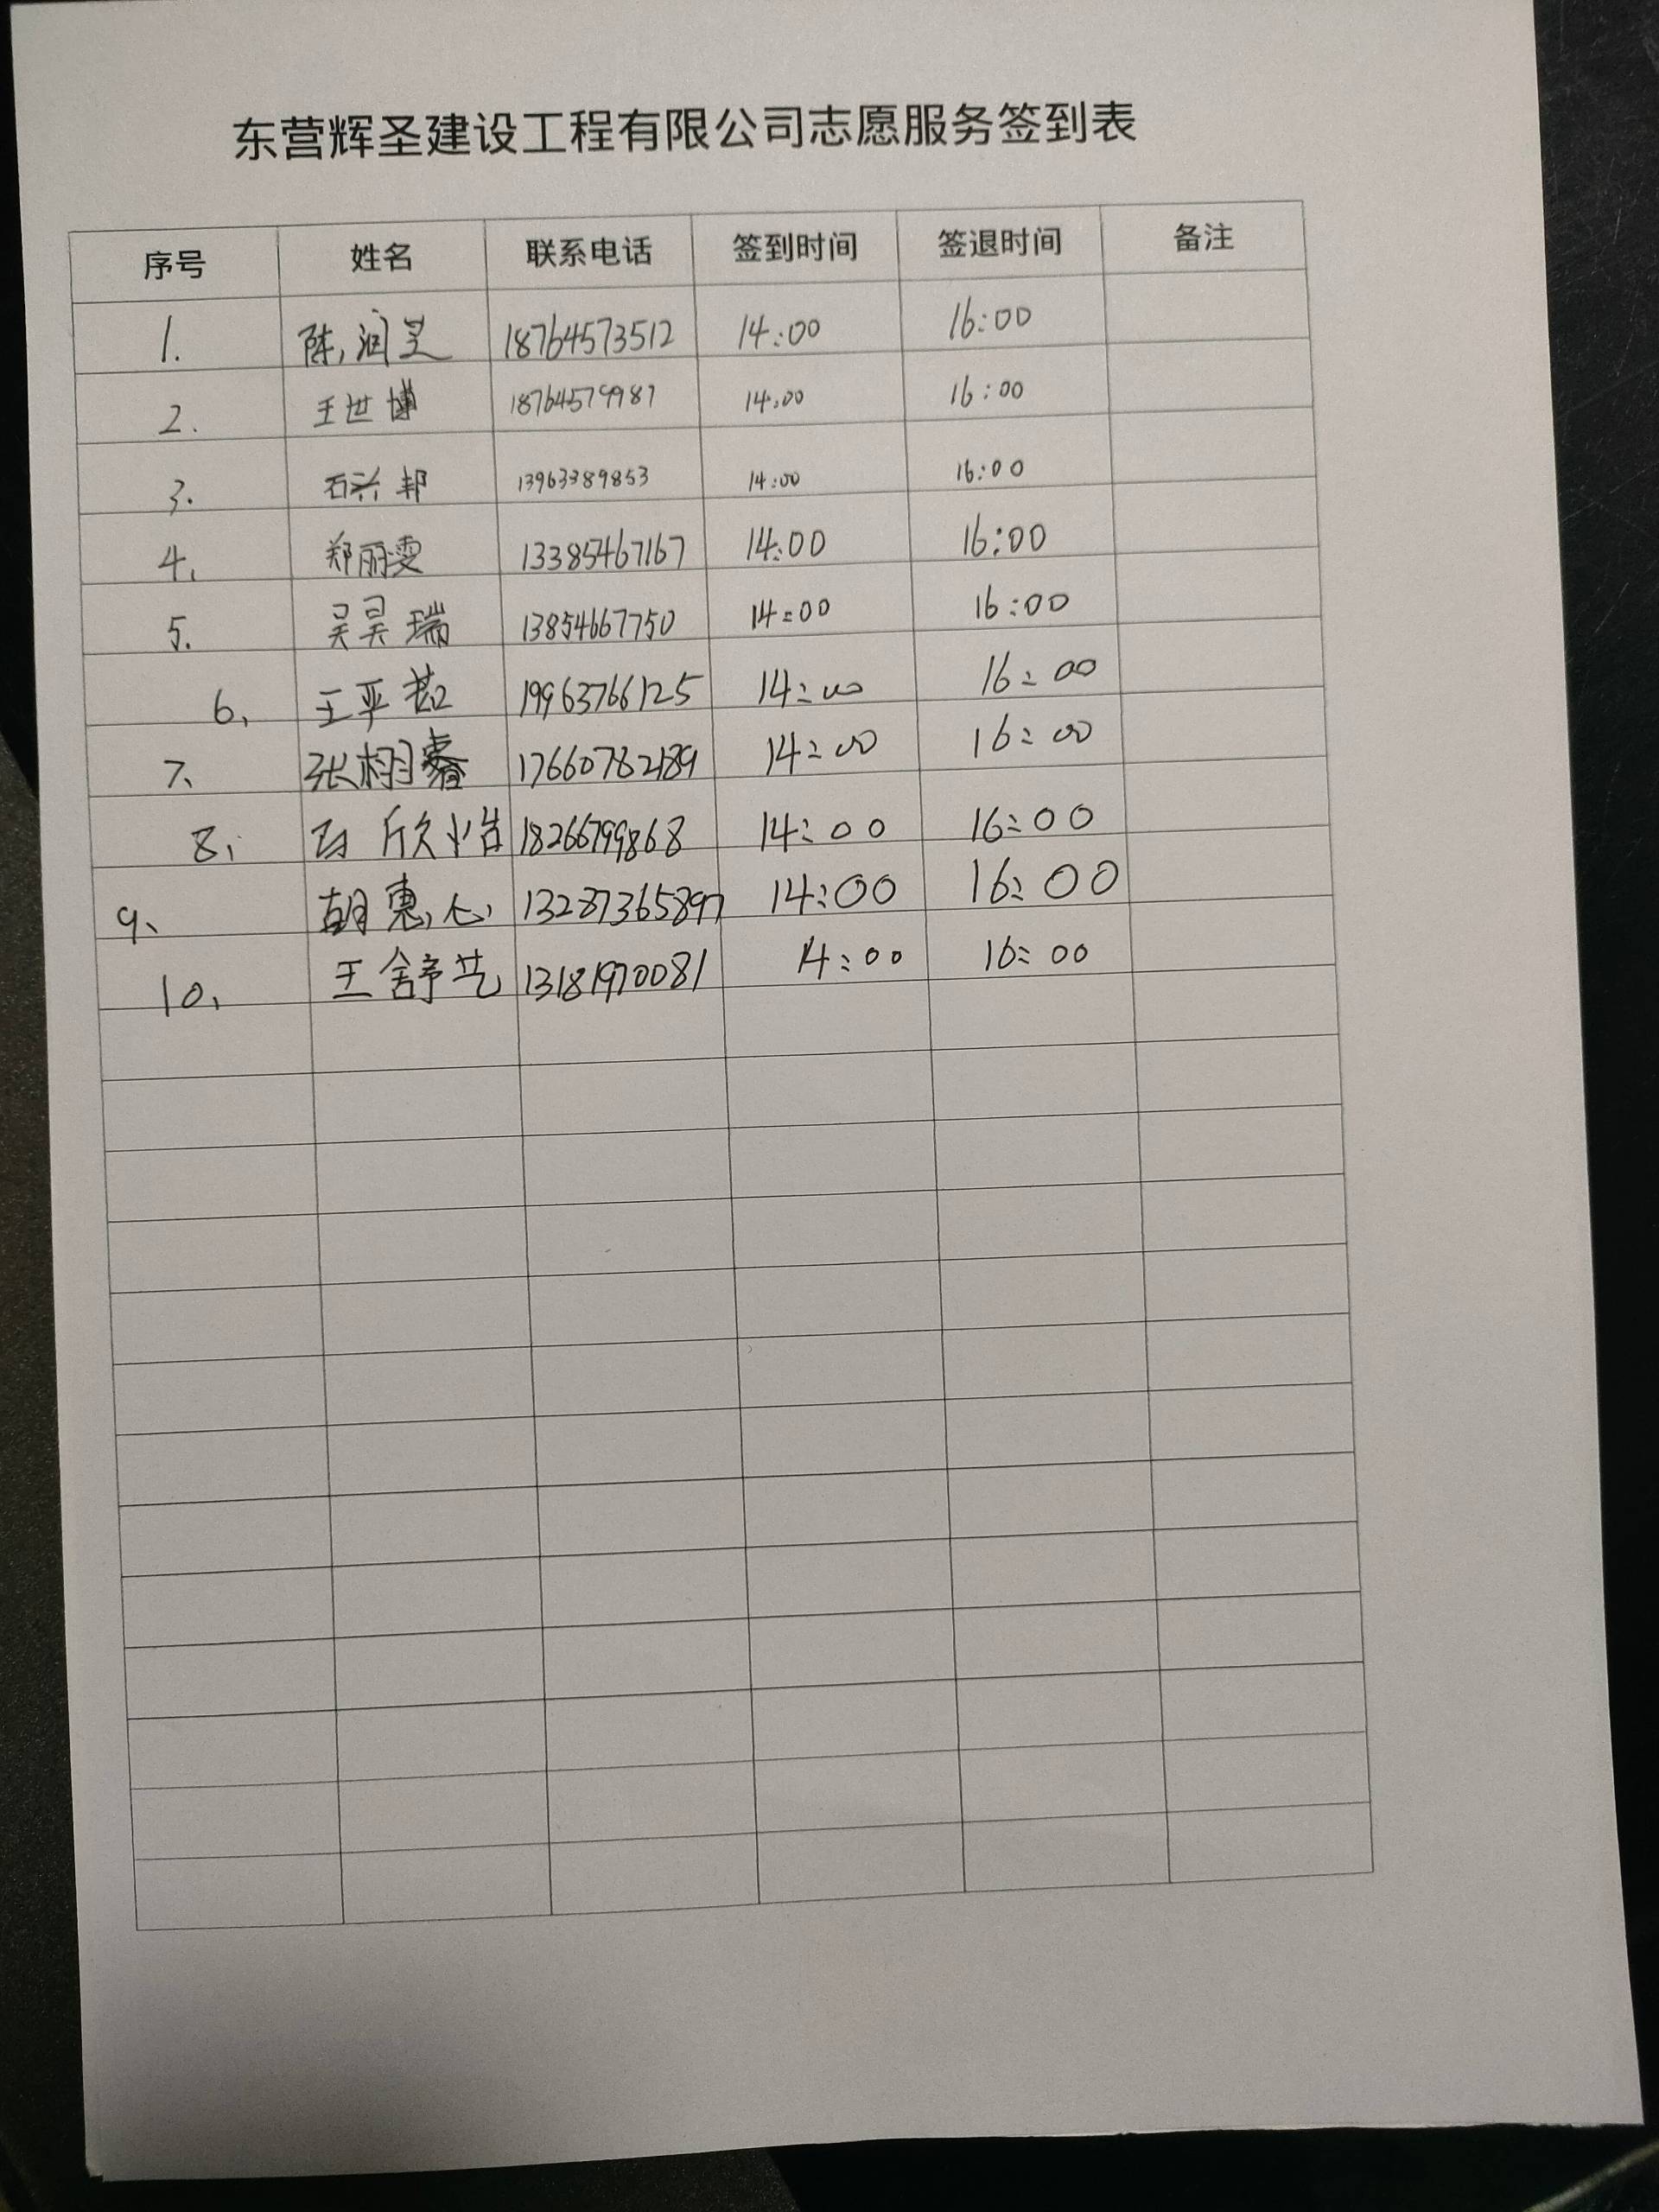 东营辉圣建设工程有限公司志愿服务签到表
序号 姓名 联系电话 签到时间 签退时间 备注
1. 陈润芝 18764573512 14:00 16:00
2. 王世博 18764579987 14:00 16:00
3. 石兴邦 13963389853 14:00 16:00
4. 郑丽雯 13385467167 14:00 16:00
5. 吴昊瑞 13854667750 14:00 16:00
6. 王平 19963766125 14:00 16:00
7. 张栩睿 17660782189 14:00 16:00
8. 欣怡 18266799868 14:00 16:00
9、 胡惠心 13287365897 14:00 16:00
10. 王舒艺 13181970081 14:00 16:00